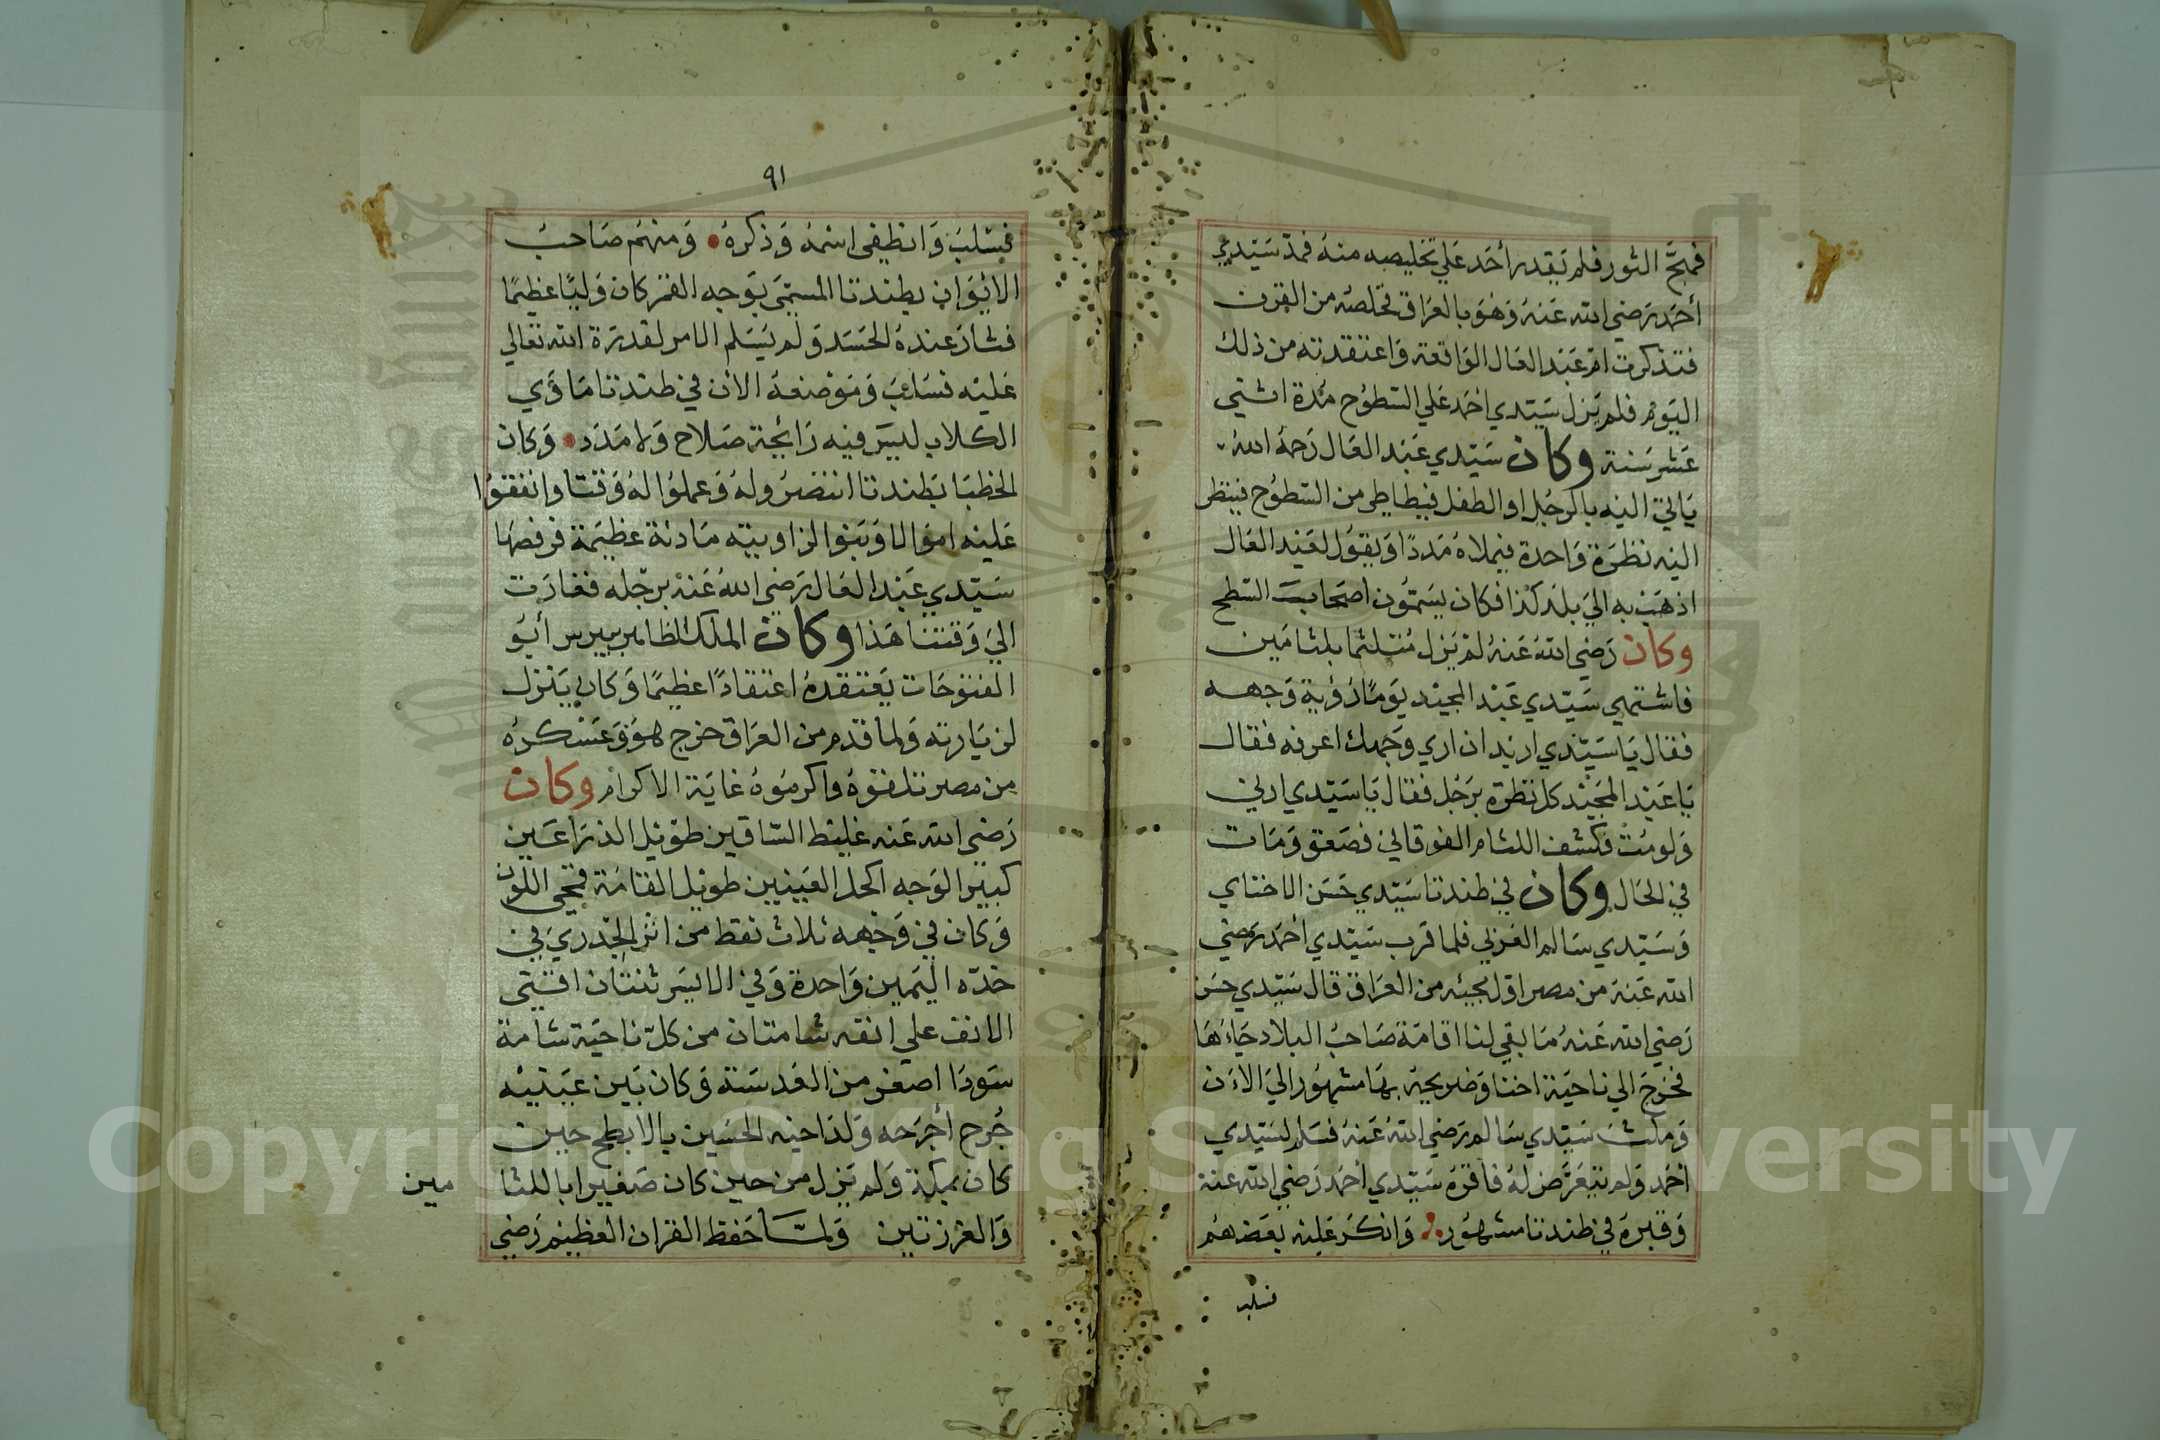 فمجّ الثور فلم يقدر أحد علي تخليصه منه فمدّ سيّدي
أحمد رضي الله عنه وهو بالعراق فخلصه من القرن
فتذكرت امّ عبد العال الواقعة واعتقدته من ذلك
اليوم فلم يزل سيّدي احمد علي السّطوح مدة اثني
عشر سنة وكان سيّدي عبد العال رحمه الله
ياتي اليه بالرجل او الطفل فيطاطي من السّطوح فينظر
اليه نظرة واحدة فيملاه مددًا ويقول لعبد العال
اذهب به الي بلد كذا فكان يسمّون اصحاب السّطح
وكان رضي الله عنه لم يزل مُتلثما بلثامين
فاشتهي سيّدي عبد المجيد يومًا رؤية وجهه
فقال يا سيّدي اريد ان اري وجهك اعرفه فقال
يا عبد المجيد كل نظرة برجل فقال يا سيّدي ارني
ولو متّ فكشف اللثام الفوقاني فصعق ومات
في الحال وكان في طندتا سيّدي حسن الاخناي
وسيّدي سالم المغربي فلما قرب سيّدي احمد رضي
الله عنه من مصر اوّل مجيئه من العراق قال سيّدي حسن
رضي الله عنه ما بقي لنا اقامة صاحب البلاد جاءها
فخرج الي ناحية اخنا وضريحه بها مشهور الي الآن
ومكث سيّدي سالم رضي الله عنه فسلم لسيّدي
احمد ولم يتعرّض له فاقره سيّدي احمد رضي الله عنه
وقبره في طندتا مشهور وانكر عليه بعضهم
فسلب
٩١
فسلب وانطفي اسمه وذكره ومنهم صاحب
الايوان بطندتا المسمّى بوجه القمر كان وليًا عظيمًا
فثار عنده الحسد ولم يسلم الامر لقدرة الله تعالي
عليه فسلب وموضعه الان في طندتا ماوي
الكلاب ليس فيه رائحة صلاح ولا مدد وكان
الخطبا بطندتا انتصروا له وعملوا له وقتا وانفقوا
عليه اموالا وبنوا لزاويته مادنة عظيمة فرفصها
سيّدي عبد العال رضي الله عنه برجله فغارت
الي وقتنا هذا وكان الملك الظاهر بيبرس أبو
الفتوحات يعتقده اعتقادًا عظيمًا وكان ينزل
لزيارته ولما قدم من العراق خرج هو وعسكره
من مصر تلقوه واكرموه غاية الاكرام وكان
رضي الله عنه غليظ السّاقين طويل الذراعين
كبير الوجه اكحل العينين طويل القامة قمحي اللون
وكان في وجهه ثلاث نقط من اثر الجدري في
خدّه اليمين واحدة وفي الايسر ثنتان اقني
الانف علي انفه شامتان من كلّ ناحية شامة
سودا اصغر من العدسة وكان بين عينيه
جرح أجرحه ولد اخيه الحسين بالابطح حين
كان بمكة ولم يزل من حين كان صغيرا باللثا
مين
والغرزتين ولمّا حفظ القران العظيم رضي
Copyright © King Saud University